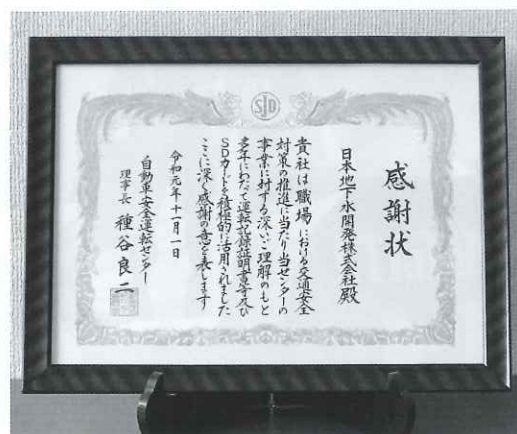 SJD
感謝状
日本地下水開発株式会社殿
貴社は職場における交通安全
対策の推進に当たり当センターの
事業に対する深いご理解のもと
多年にわたって運転記録証明書等及び
SDカードを積極的に活用されました
ここに深く感謝の意を表します
令和元年十一月一日
自動車安全運転センター
理事長 種谷良二